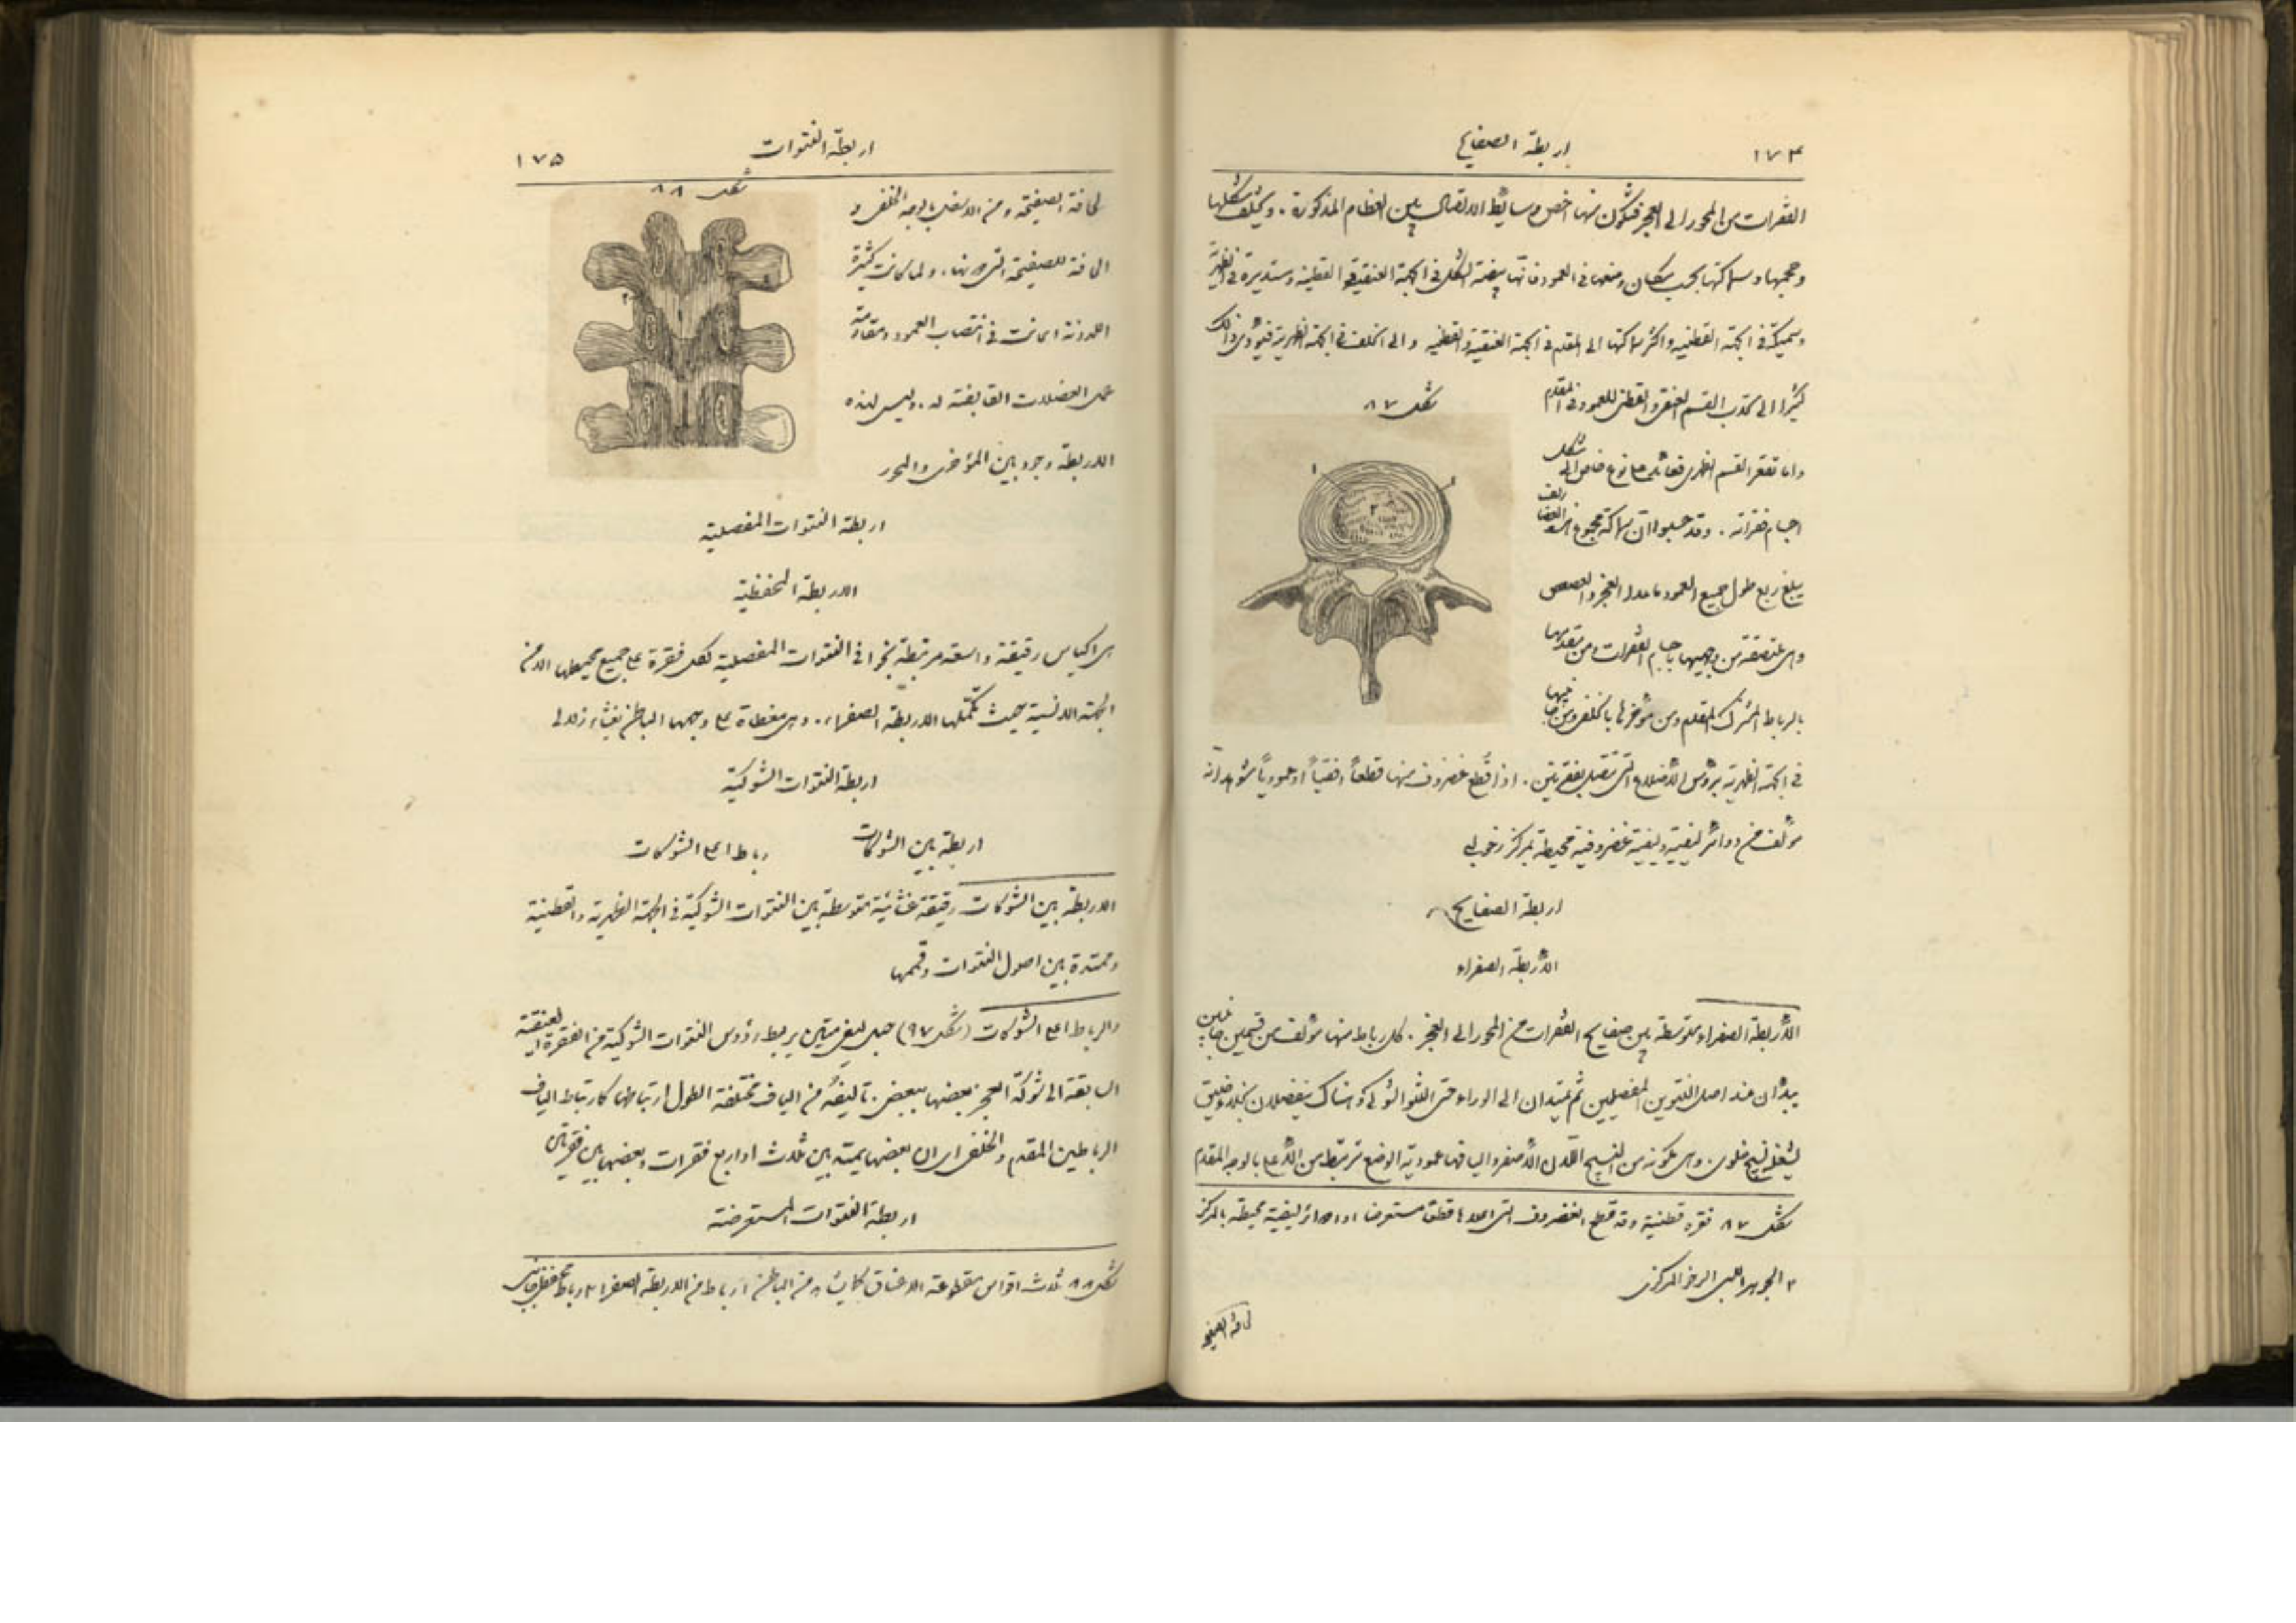 ١٧٤ اربطة الصفايح
الفقرات من المحور الى العجز فتكون منها اخص وسايط الاتصال بين العظام المذكورة . ويختلف شكلها
وحجمها وسماكتها بحسب مكان وضعها في العمود فانها بيضية الشكل في الجهة العنقية والقطنية ومستديرة في الظهرية
وسميكة في الجهة القطنية واكثر سماكتها الى المقدم في الجهة العنقية والقطنية والى الخلف في الجهة الظهرية فيؤدى ذلك
شكل ٨٧
كثيرا الى تحدب القسم العنقى والقطنى للعمود فى المقدم
واما تقعر القسم الظهرى فعائد على نوع خاص الى شكل
اجسام فقراته . وقد حسبوا ان سماكة مجموع هذه الغضاريف
يبلغ ربع طول جميع العمود ما عدا العجز والعصعص
وهى ملتصقة من وجهيها باجسام الفقرات ومن مقدمها
بالرباط المشترك المقدم ومن مؤخرها بالخلفى ومن جانبيها
فى الجهة الظهرية برؤس الاضلاع التى تتصل بفقرتين . اذا قطع غضروف منها قطعاً افقياً او عمودياً شوهد انه
مؤلف من دوائر ليفية وليفية غضروفية محيطة بمركز رخو لبى
اربطة الصفايح
الأربطة الصفراء
الأربطة الصفراء متوسطة بين صفايح الفقرات من المحور الى العجز . كل رباط منها مؤلف من قسمين جانبيين
يبدأن عند اصل النتوين المفصليين ثم يمتدان الى الوراء حتى النتو الشوكى وهناك ينفصلان بخلاء ضيق
يشغله نسيج خلوى . وهى مكونة من النسيج اللدن الأصفر واليافها عمودية الوضع ترتبط من الأعلى بالوجه المقدم
شكل ٨٧ فقرة قطنية وقد قطع الغضروف التى اعلاها قطعاً مستعرضا ١و١ دوائر ليفية محيطة بالمركز
٢ الجوهر اللبى الرخو المركزى
لحافة الصفيحة
اربطة النتوات ١٧٥
شكل ٨٨
لحافة الصفيحة ومن الاسفل بالوجه الخلفى و
الحافة للصفيحة التى دونها . ولما كانت كثيرة
اللدونة اعانت فى انتصاب العمود ومقاومة
عمل العضلات القابضة له . وليس لهذه
الاربطة وجود بين المؤخرى والمحور
اربطة النتوات المفصلية
الاربطة المحفظية
هى اكياس رقيقة واسعة مرتبطة بحوافى النتوات المفصلية لكل فقرة على جميع محيطها الا من
الجهة الانسية حيث تكملها الاربطة الصفراء . وهى مغطاة على وجهها الباطن بغشاء زلالى
اربطة النتوات الشوكية
اربطة بين الشوكات رباط اعلى الشوكات
الاربطة بين الشوكات رقيقة غشائية متوسطة بين النتوات الشوكية فى الجهة الظهرية والقطنية
وممتدة بين اصول النتوات وقممها
والرباط اعلى الشوكات (شكل ٩٧) حبل ليفى متين يربط رؤوس النتوات الشوكية من الفقرة العنقية
السابعة الى شوكة العجز بعضها ببعض . تأليفه من الياف مختلفة الطول ارتباطها كارتباط الياف
الرباطين المقدم والخلفى اى ان بعضها يمتد بين ثلاث او اربع فقرات وبعضها بين فقرتين
اربطة النتوات المستعرضة
شكل ٨٨ ثلاث اقواس مقطوعة الاعناق كما يشاهد من الباطن ١ رباط من الاربطة الصفرا ٢ و٢ رباط محفظى جانبى